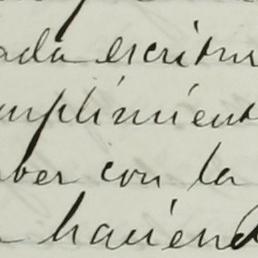 ada escritur
umplimient
ver con la
haciend